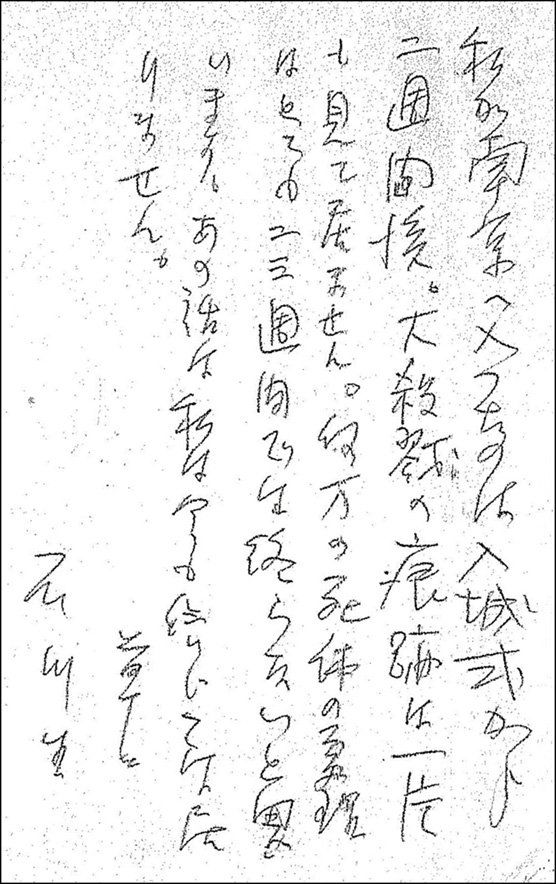 私が南京へ入つたのは入城式から
二週間後。大殺戮の痕跡は一片
も見て居ません。何万の死体の処理
はとても二三週間では終らないと思
います。あの話は私は今も信じては居
りません。
草々
石川生